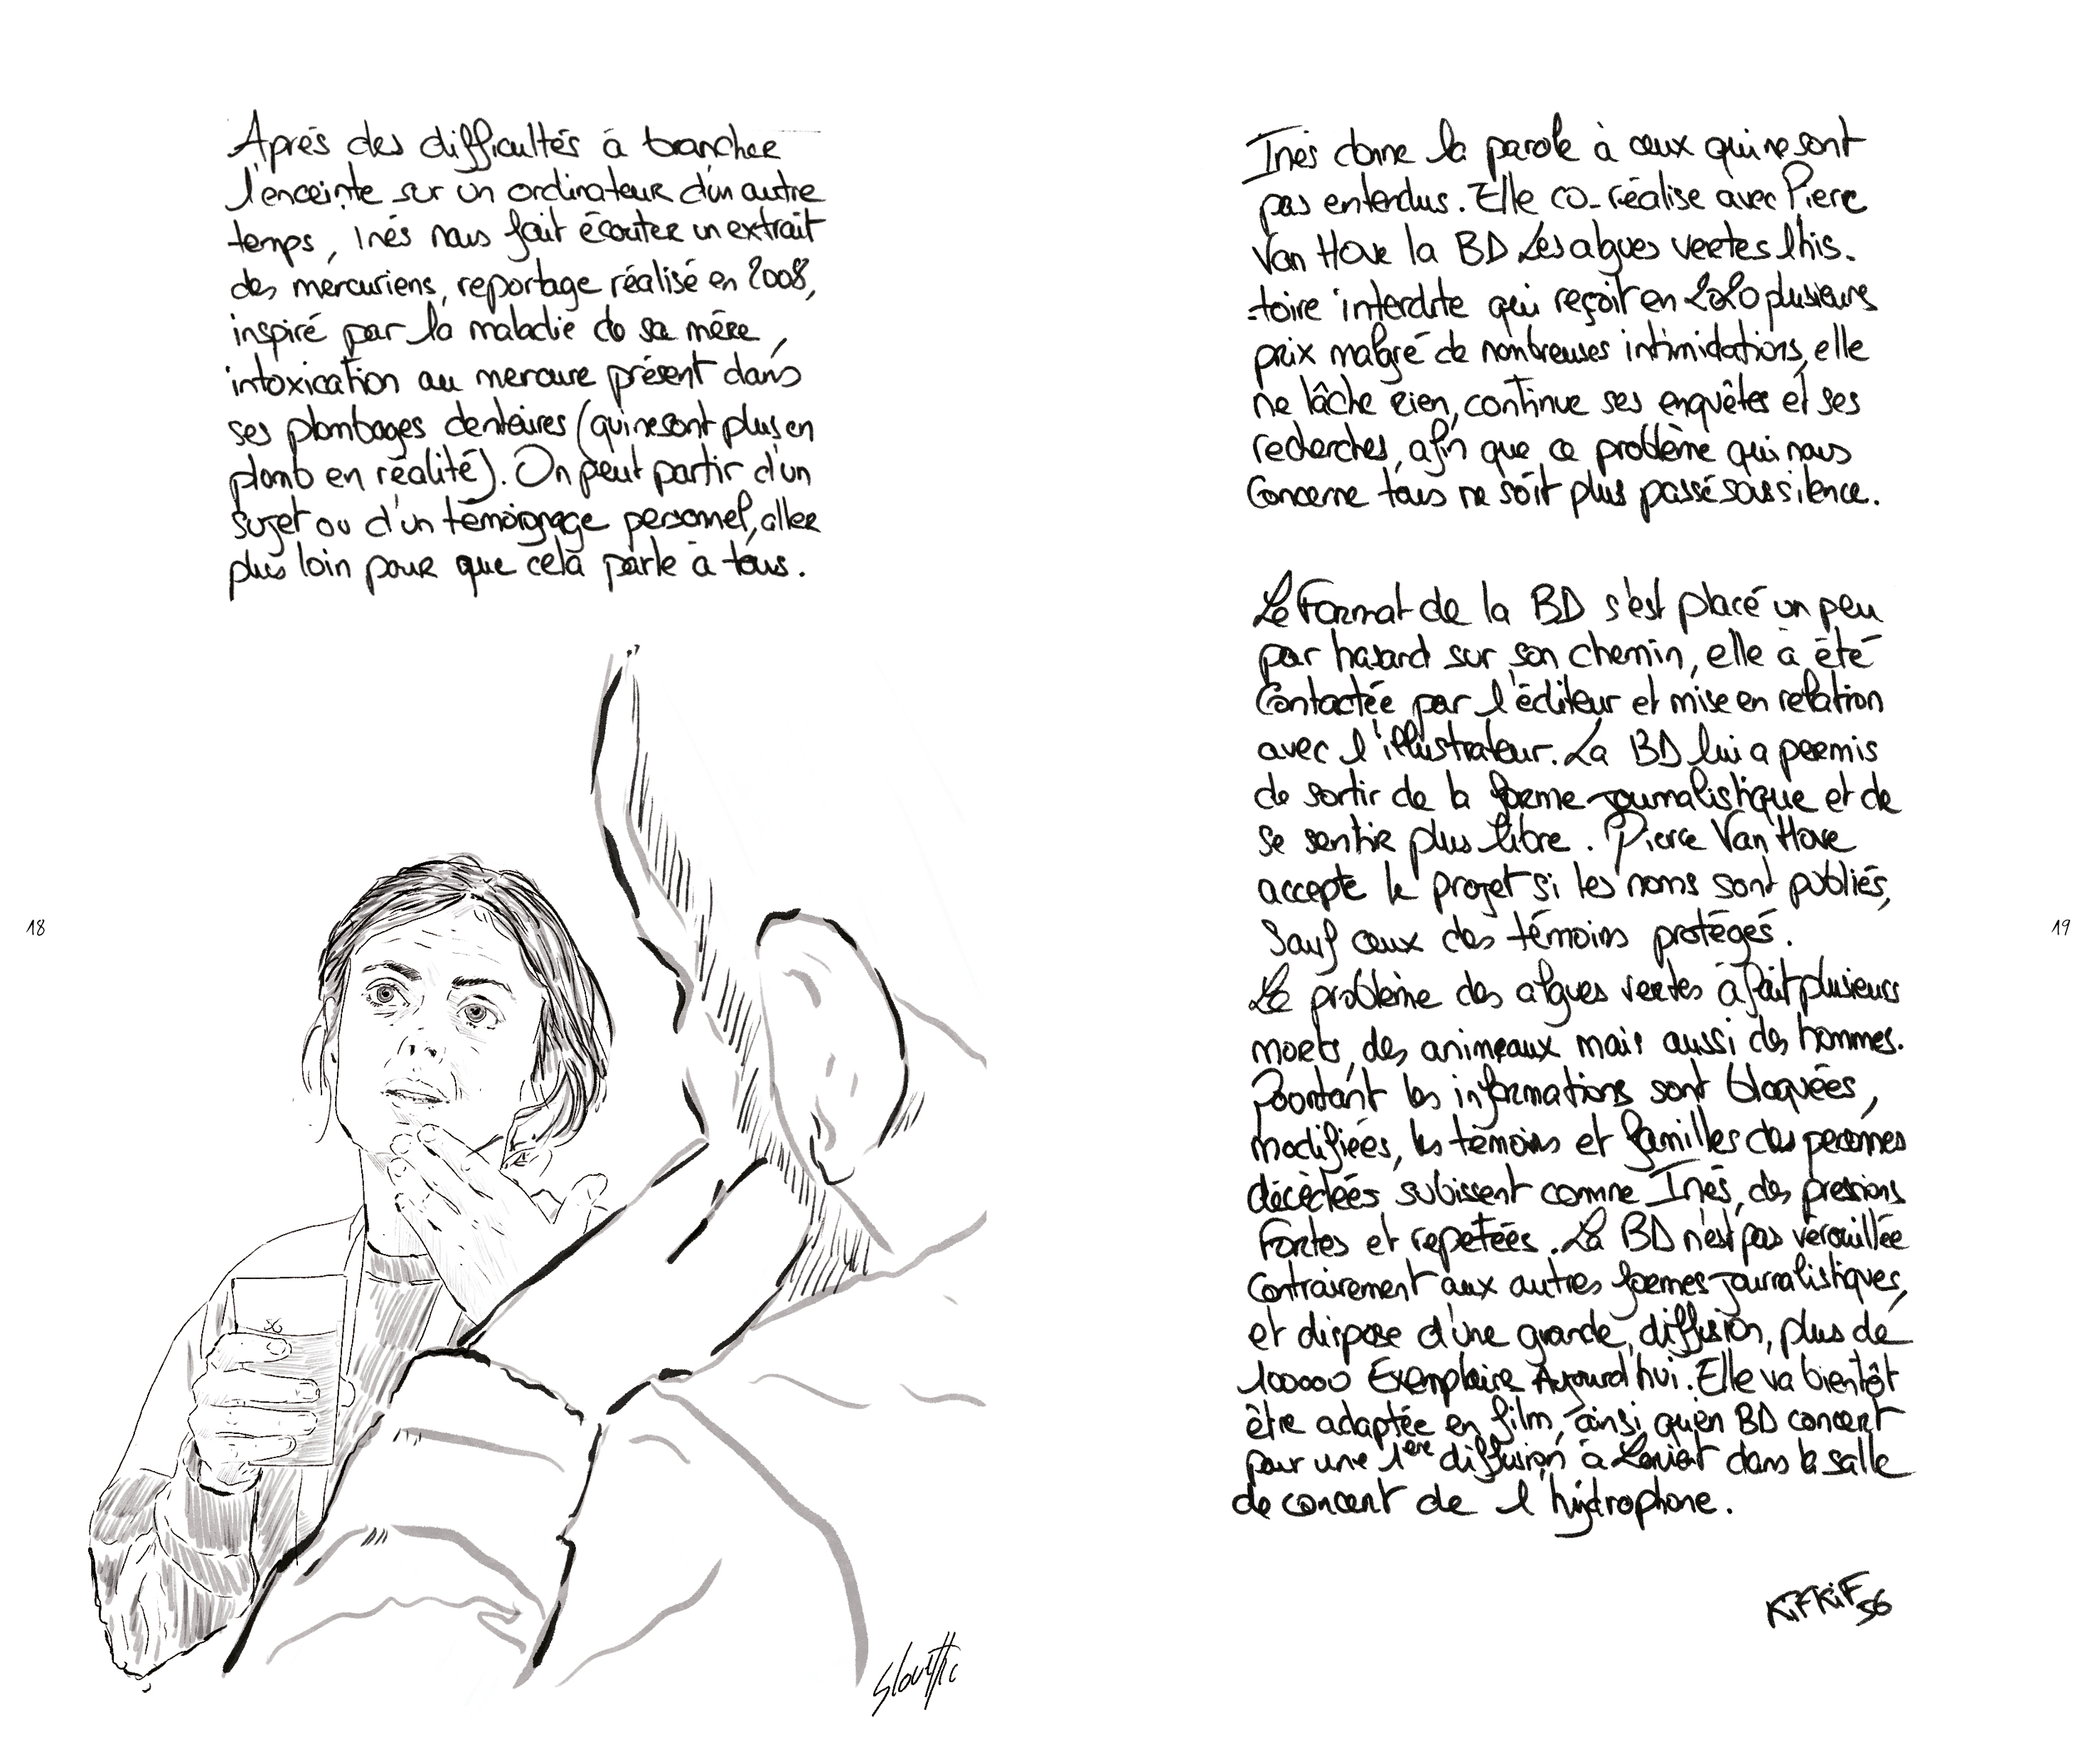 Après des difficultés à brancher
l'enceinte sur un ordinateur d'un autre
temps, Inés nous fait écouter un extrait
des mercuriens, reportage réalisé en 2008,
inspiré par la maladie de sa mère,
intoxication au mercure présent dans
ses plombages dentaires (qui ne sont plus en
plomb en réalité). On peut partir d'un
sujet ou d'un témoignage personnel, aller
plus loin pour que cela parle à tous.
18
Slouthic
Inés donne la parole à ceux qui ne sont
pas entendus. Elle co-réalise avec Pierre
Van Hove la BD Les algues vertes l'his-
-toire interdite qui reçoit en 2020 plusieurs
prix malgré de nombreuses intimidations, elle
ne lâche rien, continue ses enquêtes et ses
recherches, afin que ce problème qui nous
concerne tous ne soit plus passé sous silence.
Le Format de la BD s'est placé un peu
par hasard sur son chemin, elle à été
contactée par l'éditeur et mise en relation
avec l'illustrateur. La BD lui a permis
de sortir de la forme journalistique et de
se sentir plus libre. Pierre Van Hove
accepte le projet si les noms sont publiés,
sauf ceux des témoins protégés.
Le problème des algues vertes à fait plusieurs
morts, des animeaux mais aussi des hommes.
Pourtant les informations sont bloquées,
modifiées, les témoins et familles des personnes
décédées subissent comme Inés, des pressions
fortes et repetées. La BD n'est pas verouillée
contrairement aux autres formes journalistiques,
et dispose d'une grande diffusion, plus de
100000 Exemplaire Aujourd'hui. Elle va bientôt
être adaptée en film, ainsi qu'en BD concert
pour une 1ère diffusion à Lorient dans la salle
de concert de l'hydrophone.
KiFKiF56
19